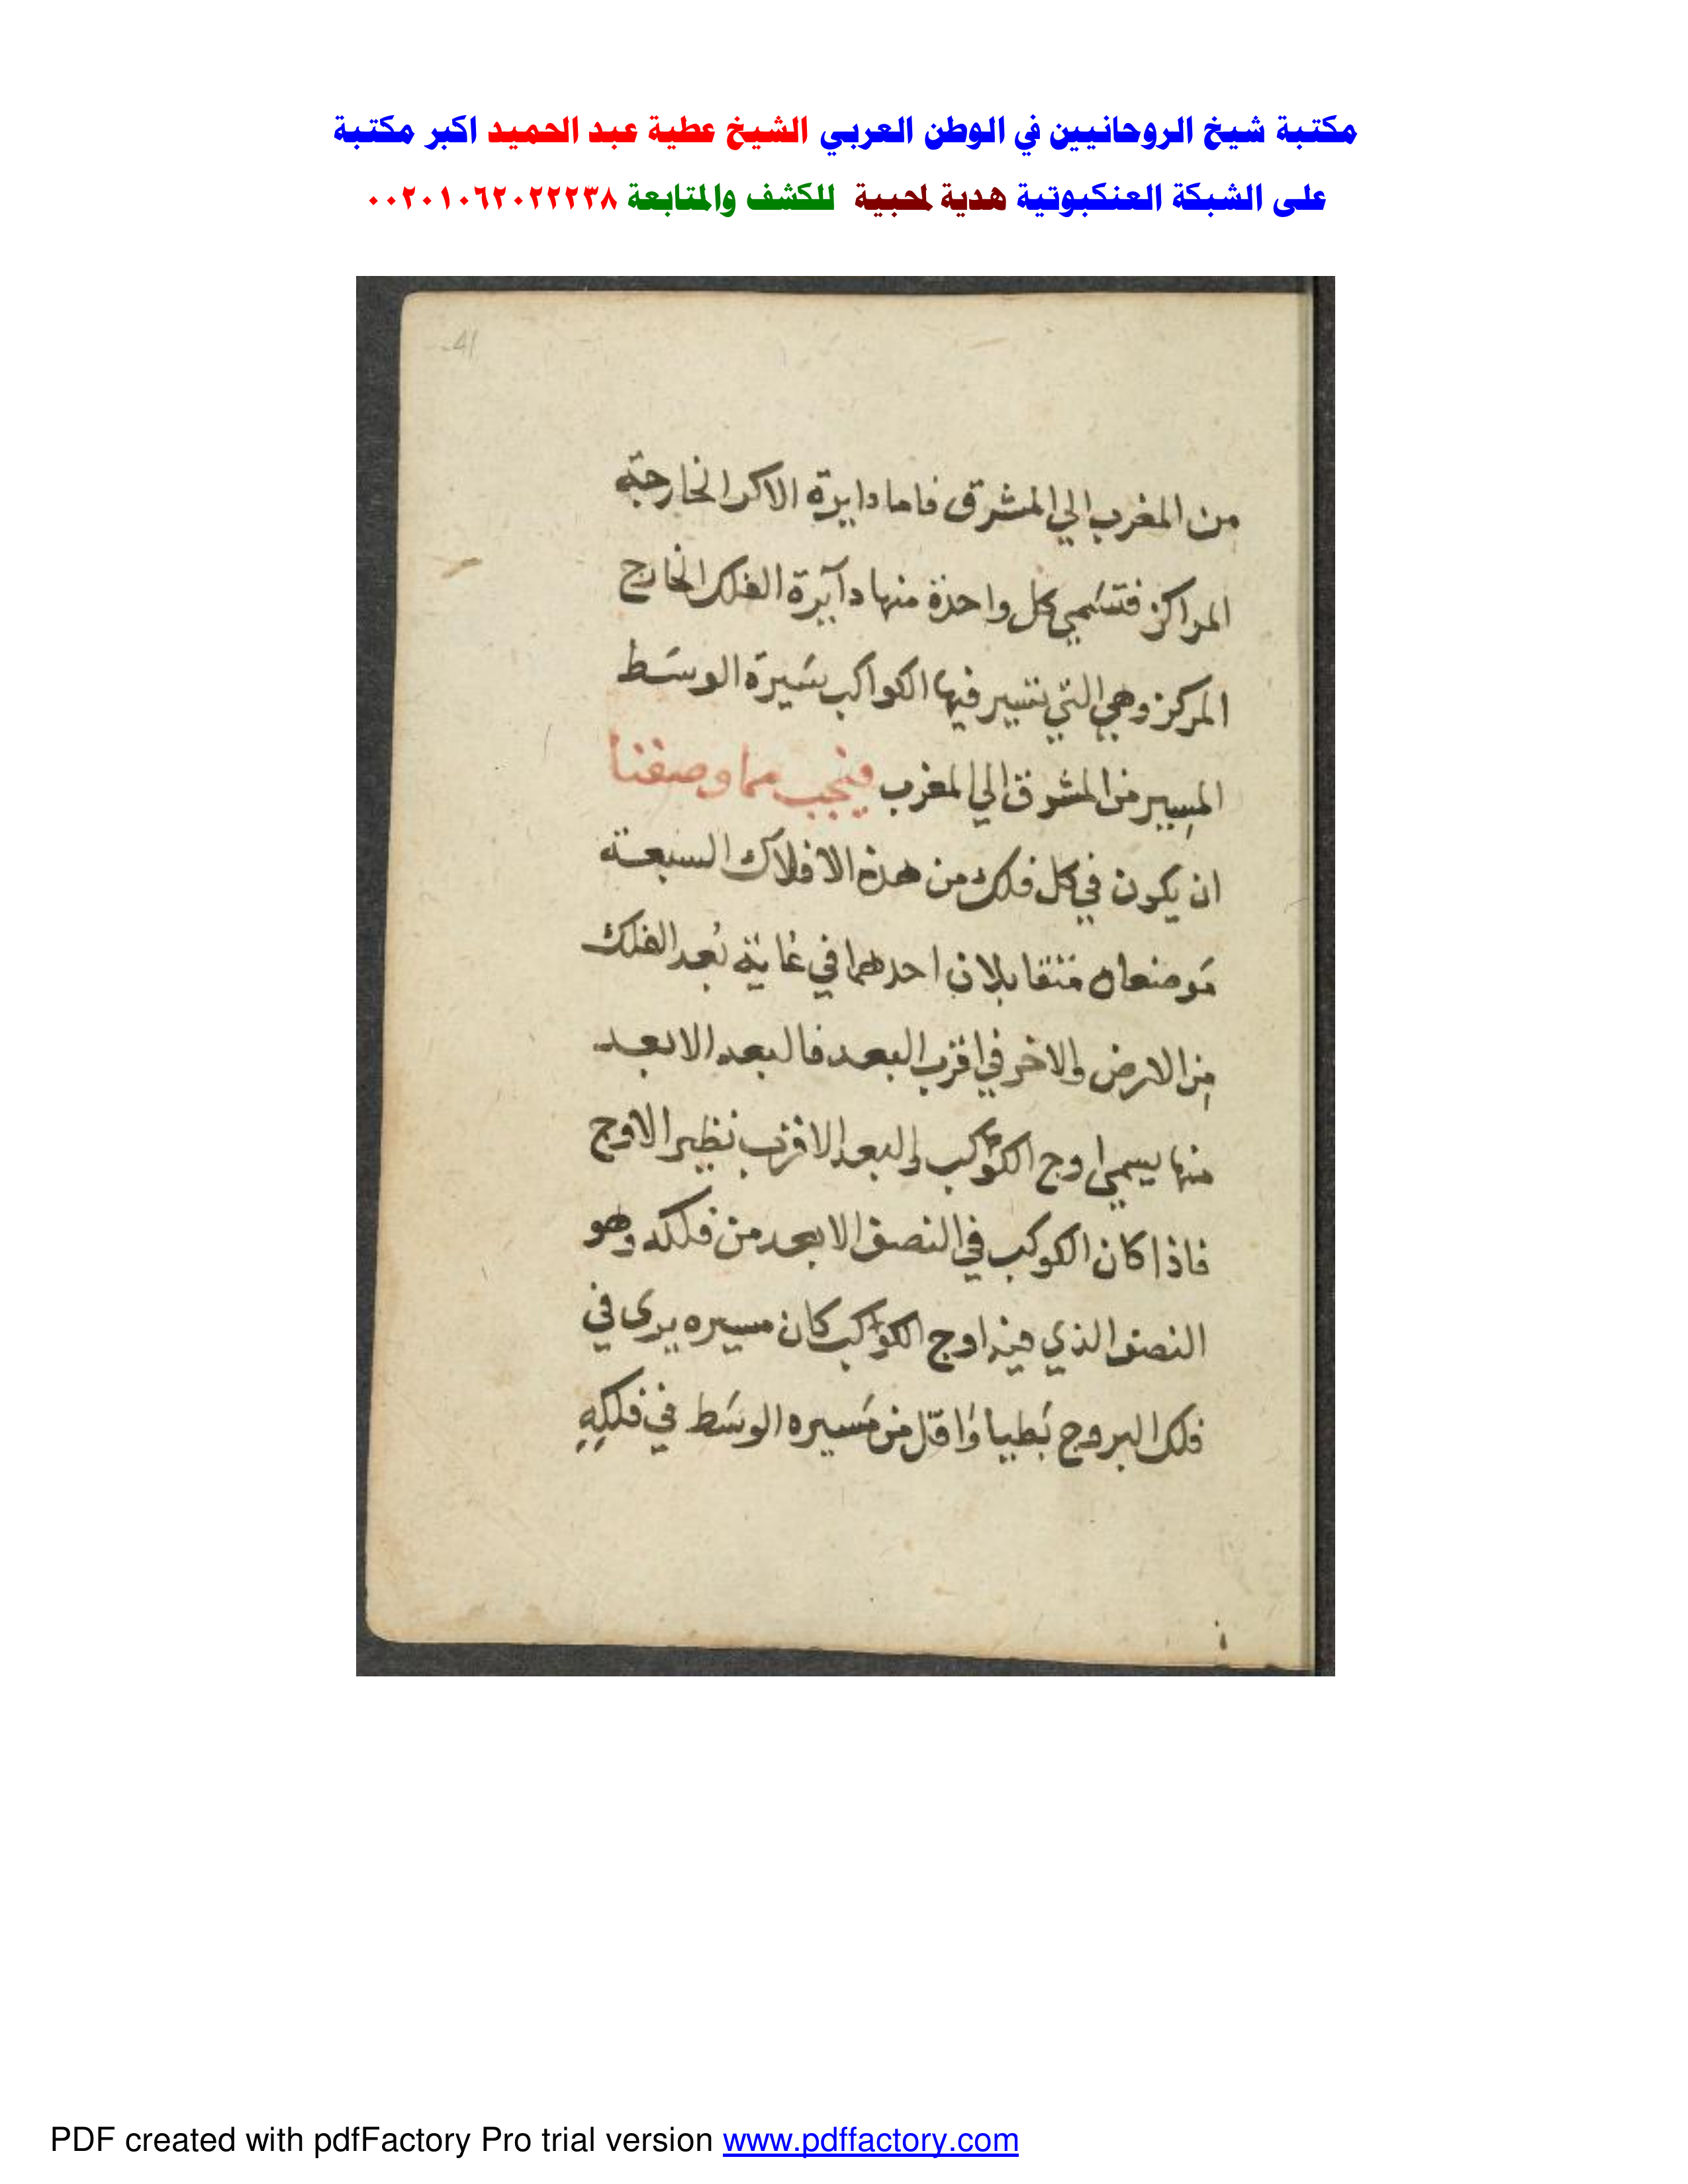 مكتبة شيخ الروحانيين في الوطن العربي الشيخ عطية عبد الحميد اكبر مكتبة
على الشبكة العنكبوتية هدية لمحبية للكشف والمتابعة ٠٠٢٠١٠٦٢٠٢٢٢٣٨
41
من المغرب الي المشرق فاما دايرة الاكر الخارجة
المراكز فتسمي كل واحدة منها دآيرة الفلك الخارج
المركز وهي التي تسير فيها الكواكب سَيرة الوسَط
المسِير من المشرق الي المغرب فيجب مما وصفنا
ان يكون في كل فلك من هذه الافلاك السبعة
مَوضعان متقابلان احدهما في غاية بُعد الفلك
مِن الارض والاخر في اقرب البعد فالبعد الابعد
منها يسمي اوج الكوكب والبعد الاقرب نظير الاوج
فاذا كان الكوكب في النصف الابعد من فلكه وهو
النصف الذي فيه اوج الكواكب كان مسيره يرى في
فلك البروج بَطيا وَاقل من مَسيره الوسَط في فلكِهِ
PDF created with pdfFactory Pro trial version www.pdffactory.com